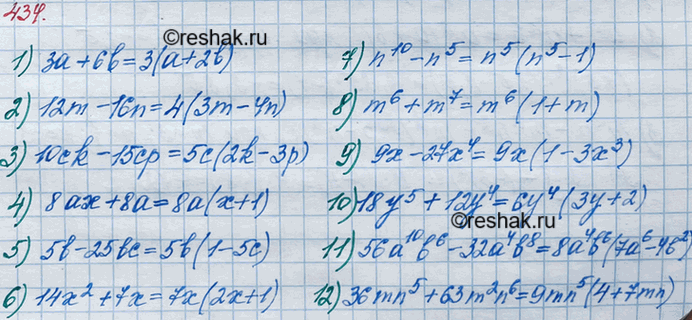 434.
©reshak.ru
1) 3a+6b=3(a+2b)
2) 12m-16n=4(3m-4n)
3) 10ck-15cp=5c(2k-3p)
4) 8ax+8a=8a(x+1)
5) 5b-25bc=5b(1-5c)
6) 14x²+7x=7x(2x+1)
7) n¹⁰-n⁵=n⁵(n⁵-1)
8) m⁶+m⁷=m⁶(1+m)
9) 9x-27x⁴=9x(1-3x³)
10) 18y⁵+12y⁴=6y⁴(3y+2)
11) 56a¹⁰b⁶-32a⁴b⁸=8a⁴b⁶(7a⁶-4b²)
12) 36mn⁵+63m²n⁶=9mn⁵(4+7mn)
©reshak.ru